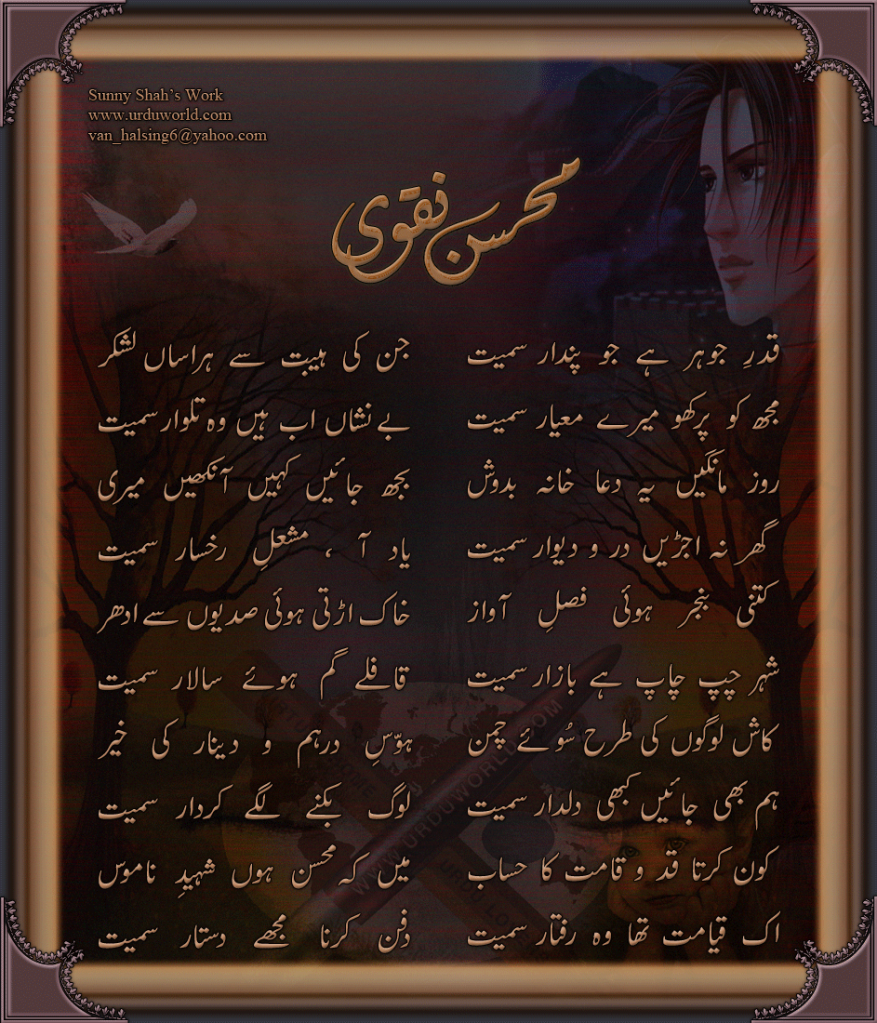 Sunny Shah's Work
www.urduworld.com
van_halsing6@yahoo.com
محسن نقوی
قدرِ جوہر ہے جو پندار سمیت
مجھ کو پرکھو میرے معیار سمیت
روز مانگیں یہ دعا خانہ بدوش
گھر نہ اجڑیں در و دیوار سمیت
کتنی بنجر ہوئی فصلِ آواز
شہر چپ چاپ ہے بازار سمیت
کاش لوگوں کی طرح سُوئے چمن
ہم بھی جائیں کبھی دلدار سمیت
کون کرتا قد و قامت کا حساب
اک قیامت تھا وہ رفتار سمیت
جن کی ہیبت سے ہراساں لشکر
بے نشاں اب ہیں وہ تلوار سمیت
بجھ جائیں کہیں آنکھیں میری
یاد آ ، مشعلِ رخسار سمیت
خاک اڑتی ہوئی صدیوں سے ادھر
قافلے گم ہوئے سالار سمیت
ہوّسِ درہم و دینار کی خیر
لوگ بکنے لگے کردار سمیت
میں کہ محسن ہوں شہیدِ ناموس
دفن کرنا مجھے دستار سمیت
WWW.URDUWORLD.COM